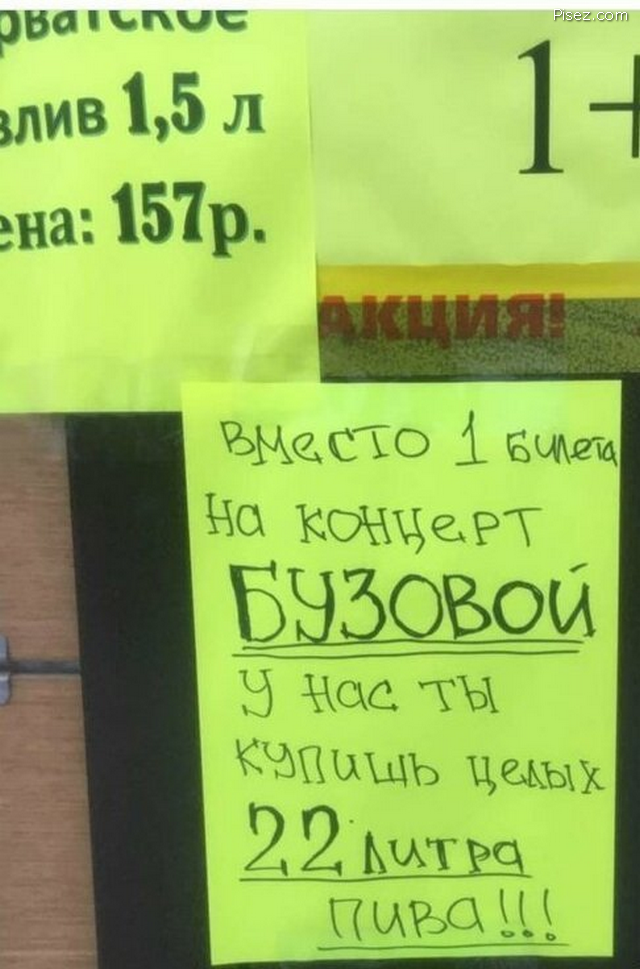 Pisez.com
1,5 л
157р.
1+
АКЦИЯ!
Вместо 1 билета
на концерт
БУЗОВОЙ
у нас ты
купишь целых
22 литра
пива!!!